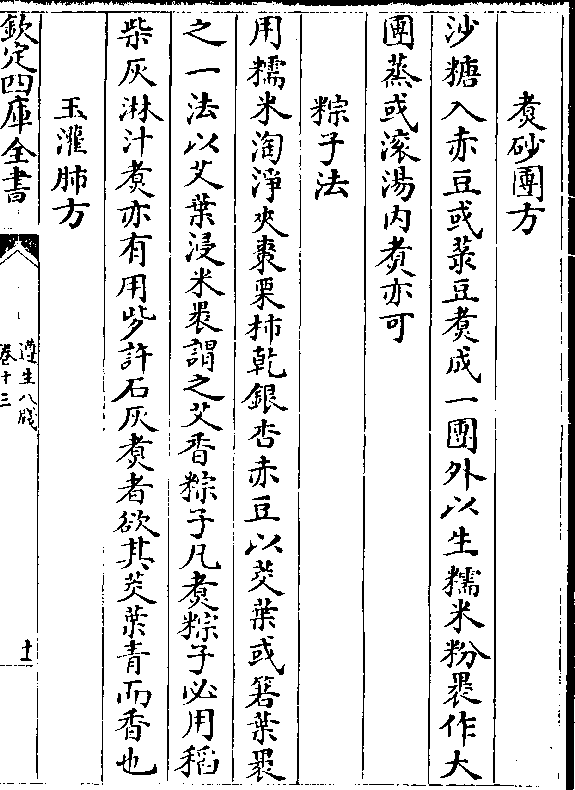 煑砂團方
沙糖入赤豆或菉豆煑成一團外以生糯米粉裹作大
團蒸或滚湯内煑亦可
粽子法
用糯米淘淨夾棗栗柿乾銀杏赤豆以茭葉或箬葉裹
之一法以艾葉浸米裹謂之艾香粽子凡煑粽子必用稻
柴灰淋汁煑亦有用些許石灰煑者欲其茭葉青而香也
玉灌肺方
欽定四庫全書
遵生八牋
卷十三
十一